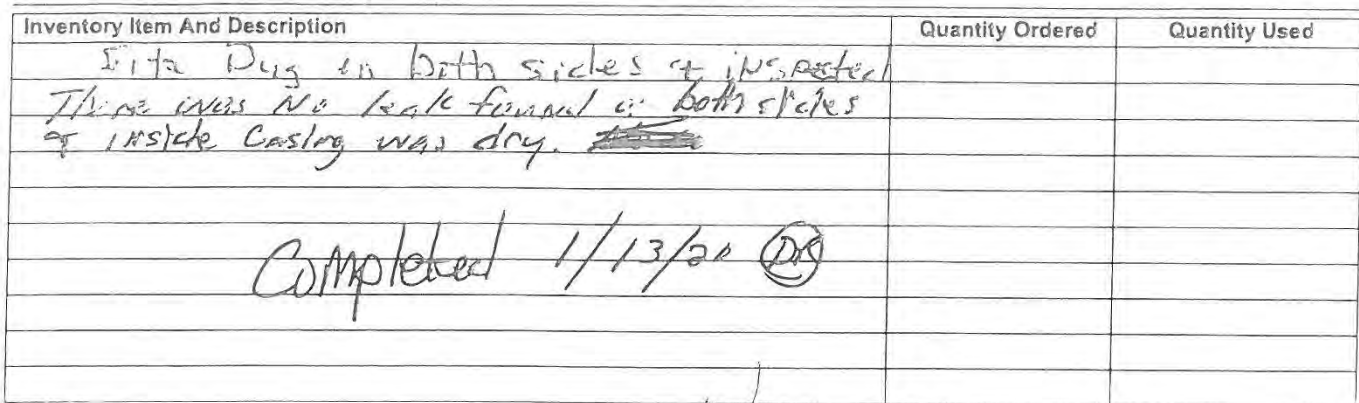 Inventory Item And Description Quantity Ordered Quantity Used
Dug in both sides & inspected
There was No leak found both sides
& inside Casing was dry.
Completed 1/13/20